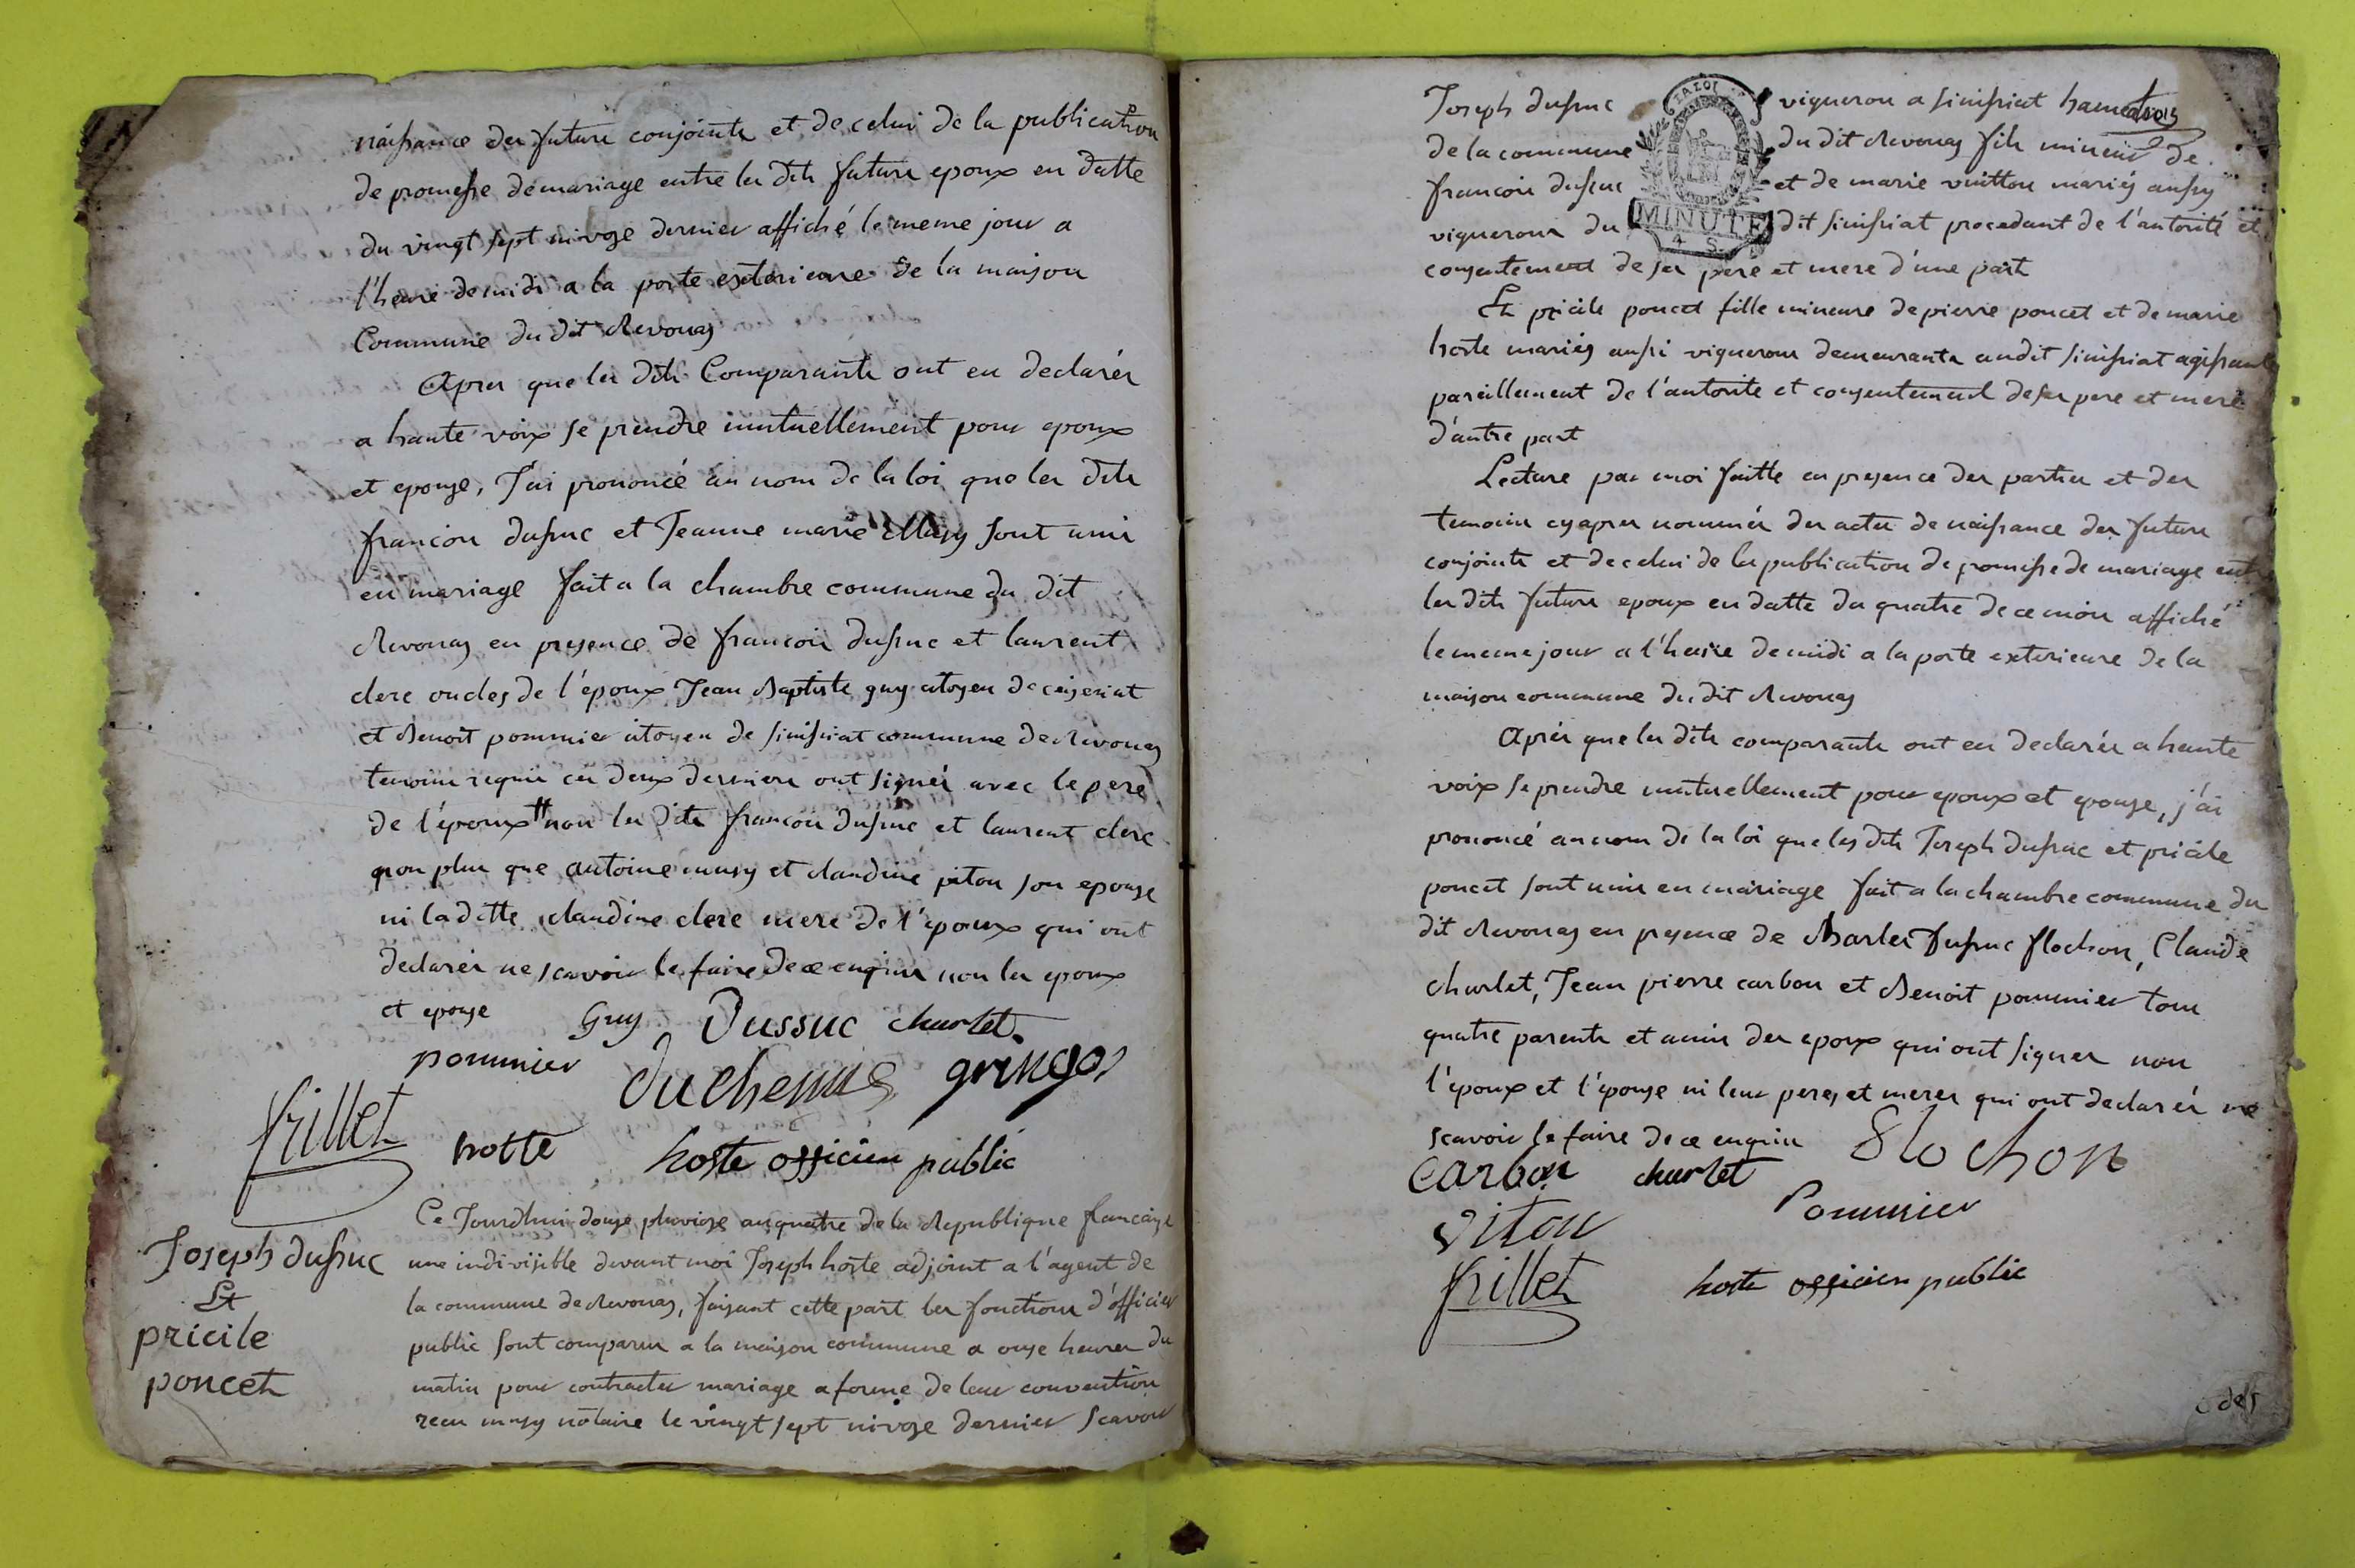 naissance des futurs conjoints et de celui de la publication
de promesse de mariage entre les dits futurs epoux en datte
du vingt sept nivose dernier affiché le meme jour a
l'heure de midi a la porte exterieure de la maison
Commune du dit Revonas
Apres que les dits Comparants ont eu declarés
a haute voix se prendre mutuellement pour epoux
et epouse, J'ai prononcé au nom de la loi que les dits
francois dussuc et Jeanne marie Musy sont unis
en mariage fait a la chambre commune du dit
Revonas en presence de francois dussuc et laurent
clerc oncles de l'époux Jean Baptiste guy citoyen de ceizeriat
et Benoit pommier citoyen de simssiat commune de Revonas
temoins requis ces deux derniers ont signés avec le pere
de l'époux non les dits francois dussuc et laurent clerc
non plus que antoine musy et claudine piton son epouse
ni la ditte claudine clerc mere de l'epoux qui ont
declarés ne scavoir le faire de ce enquis non les epoux
et epouse Guy Dussuc charlet
pommier duchesme gringoz
frillet hotte hoste officier public
Joseph dussuc
Et
pricile
poncet
Ce Jourdhui douze pluviose an quatre de la Republique francaise
une indivisible devant moi Joseph hoste adjoint a l'agent de
la commune de Revonas, faisant cette part les fonctions d'officier
public sont comparus a la maison commune a onze heures du
matin pour contracter mariage a forme de leur convention
recu musy notaire le vingt sept nivose dernier scavoir
Joseph dussuc vigneron a simssiat hameau
de la commune du dit Revonas fils mineur de
francois dussuc et de marie vuitton mariés aussy
vignerons du dit simssiat procedant de l'autorité et
MINUTE
4 S.
consentement de ses pere et mere d'une part
Et pricile poncet fille mineure de pierre poncet et de marie
hoste mariés aussi vignerons demeurants audit simssiat agissante
pareillement de l'autorite et consentement de ses pere et mere
d'autre part
Lecture par moi faitte en presence des parties et des
temoins cy apres nommés des actes de naissance des futurs
conjoints et de celui de la publication de promesse de mariage entre
les dits futurs epoux en datte du quatre de ce mois affiché
le meme jour a l'heure de midi a la porte exterieure de la
maison commune du dit Revonas
Après que les dits comparants ont eu declarés a haute
voix se prendre mutuellement pour epoux et epouse, j'ai
prononcé au nom de la loi que les dits Joseph dussuc et pricile
poncet sont unis en mariage fait a la chambre commune du
dit Revonas en presence de Charles dussuc flochon, Claude
charlet, Jean pierre carbon et Benoit pommier tous
quatre parents et amis des epoux qui ont signer non
l'époux et l'épouse ni leur peres et meres qui ont declarés ne
scavoir le faire de ce enquis flochon
carbon charlet
Pommier
piton
frillet hoste officier public